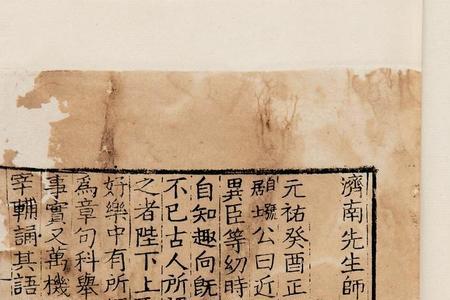 濟南先生師
元祐癸酉正
公曰近
異臣等幼時
自知趣向既
不已古人所
之者陛下上
好樂中有所
爲章句科舉
事實又萬機
宰輔誦其語